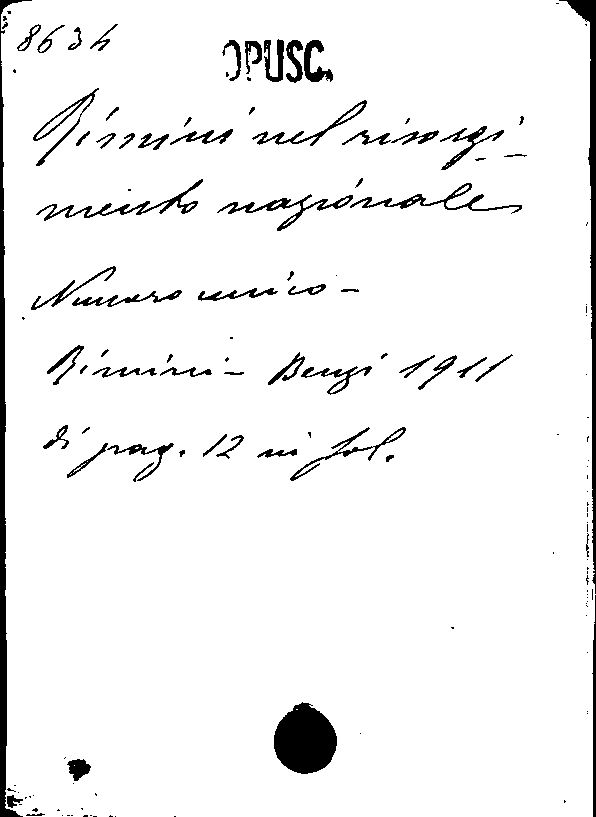 8634
OPUSC.
Rimini nel risorgi-
mento nazionale
Numero unico -
Rimini - Benzi 1911
di pag. 12 in fol.